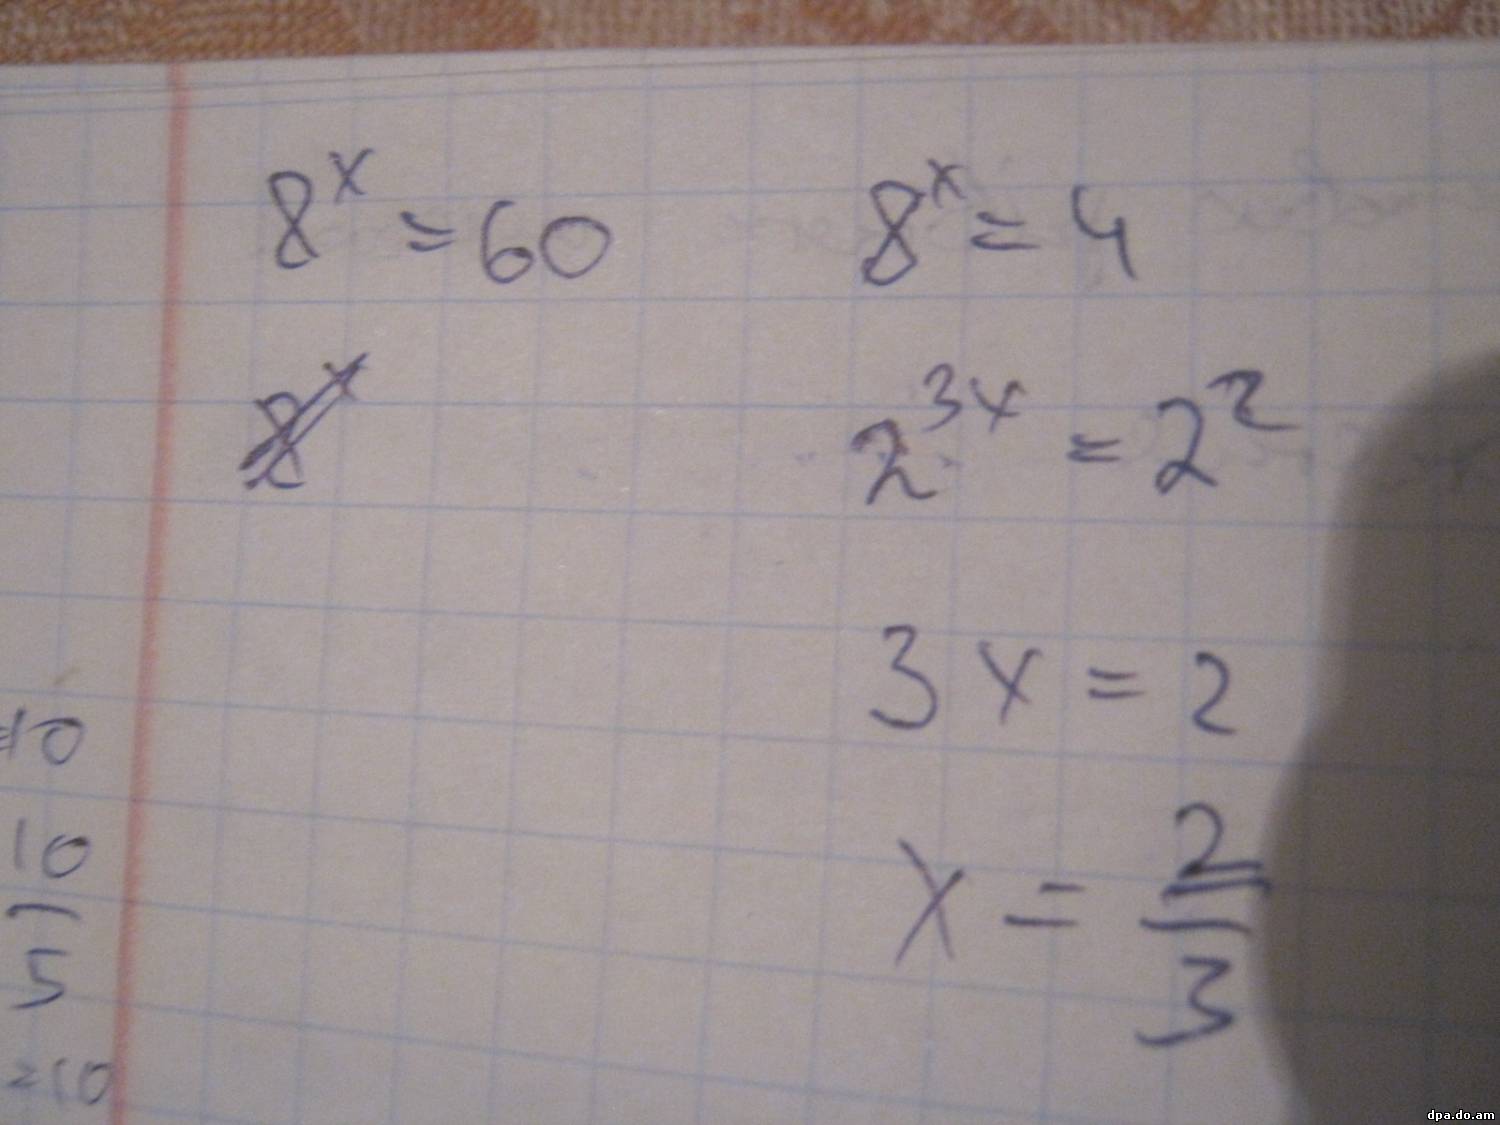 8^x = 60
8^x = 4
2^3x = 2^2
3x = 2
x = 2/3
=10
10
5
=10
dpa.do.am